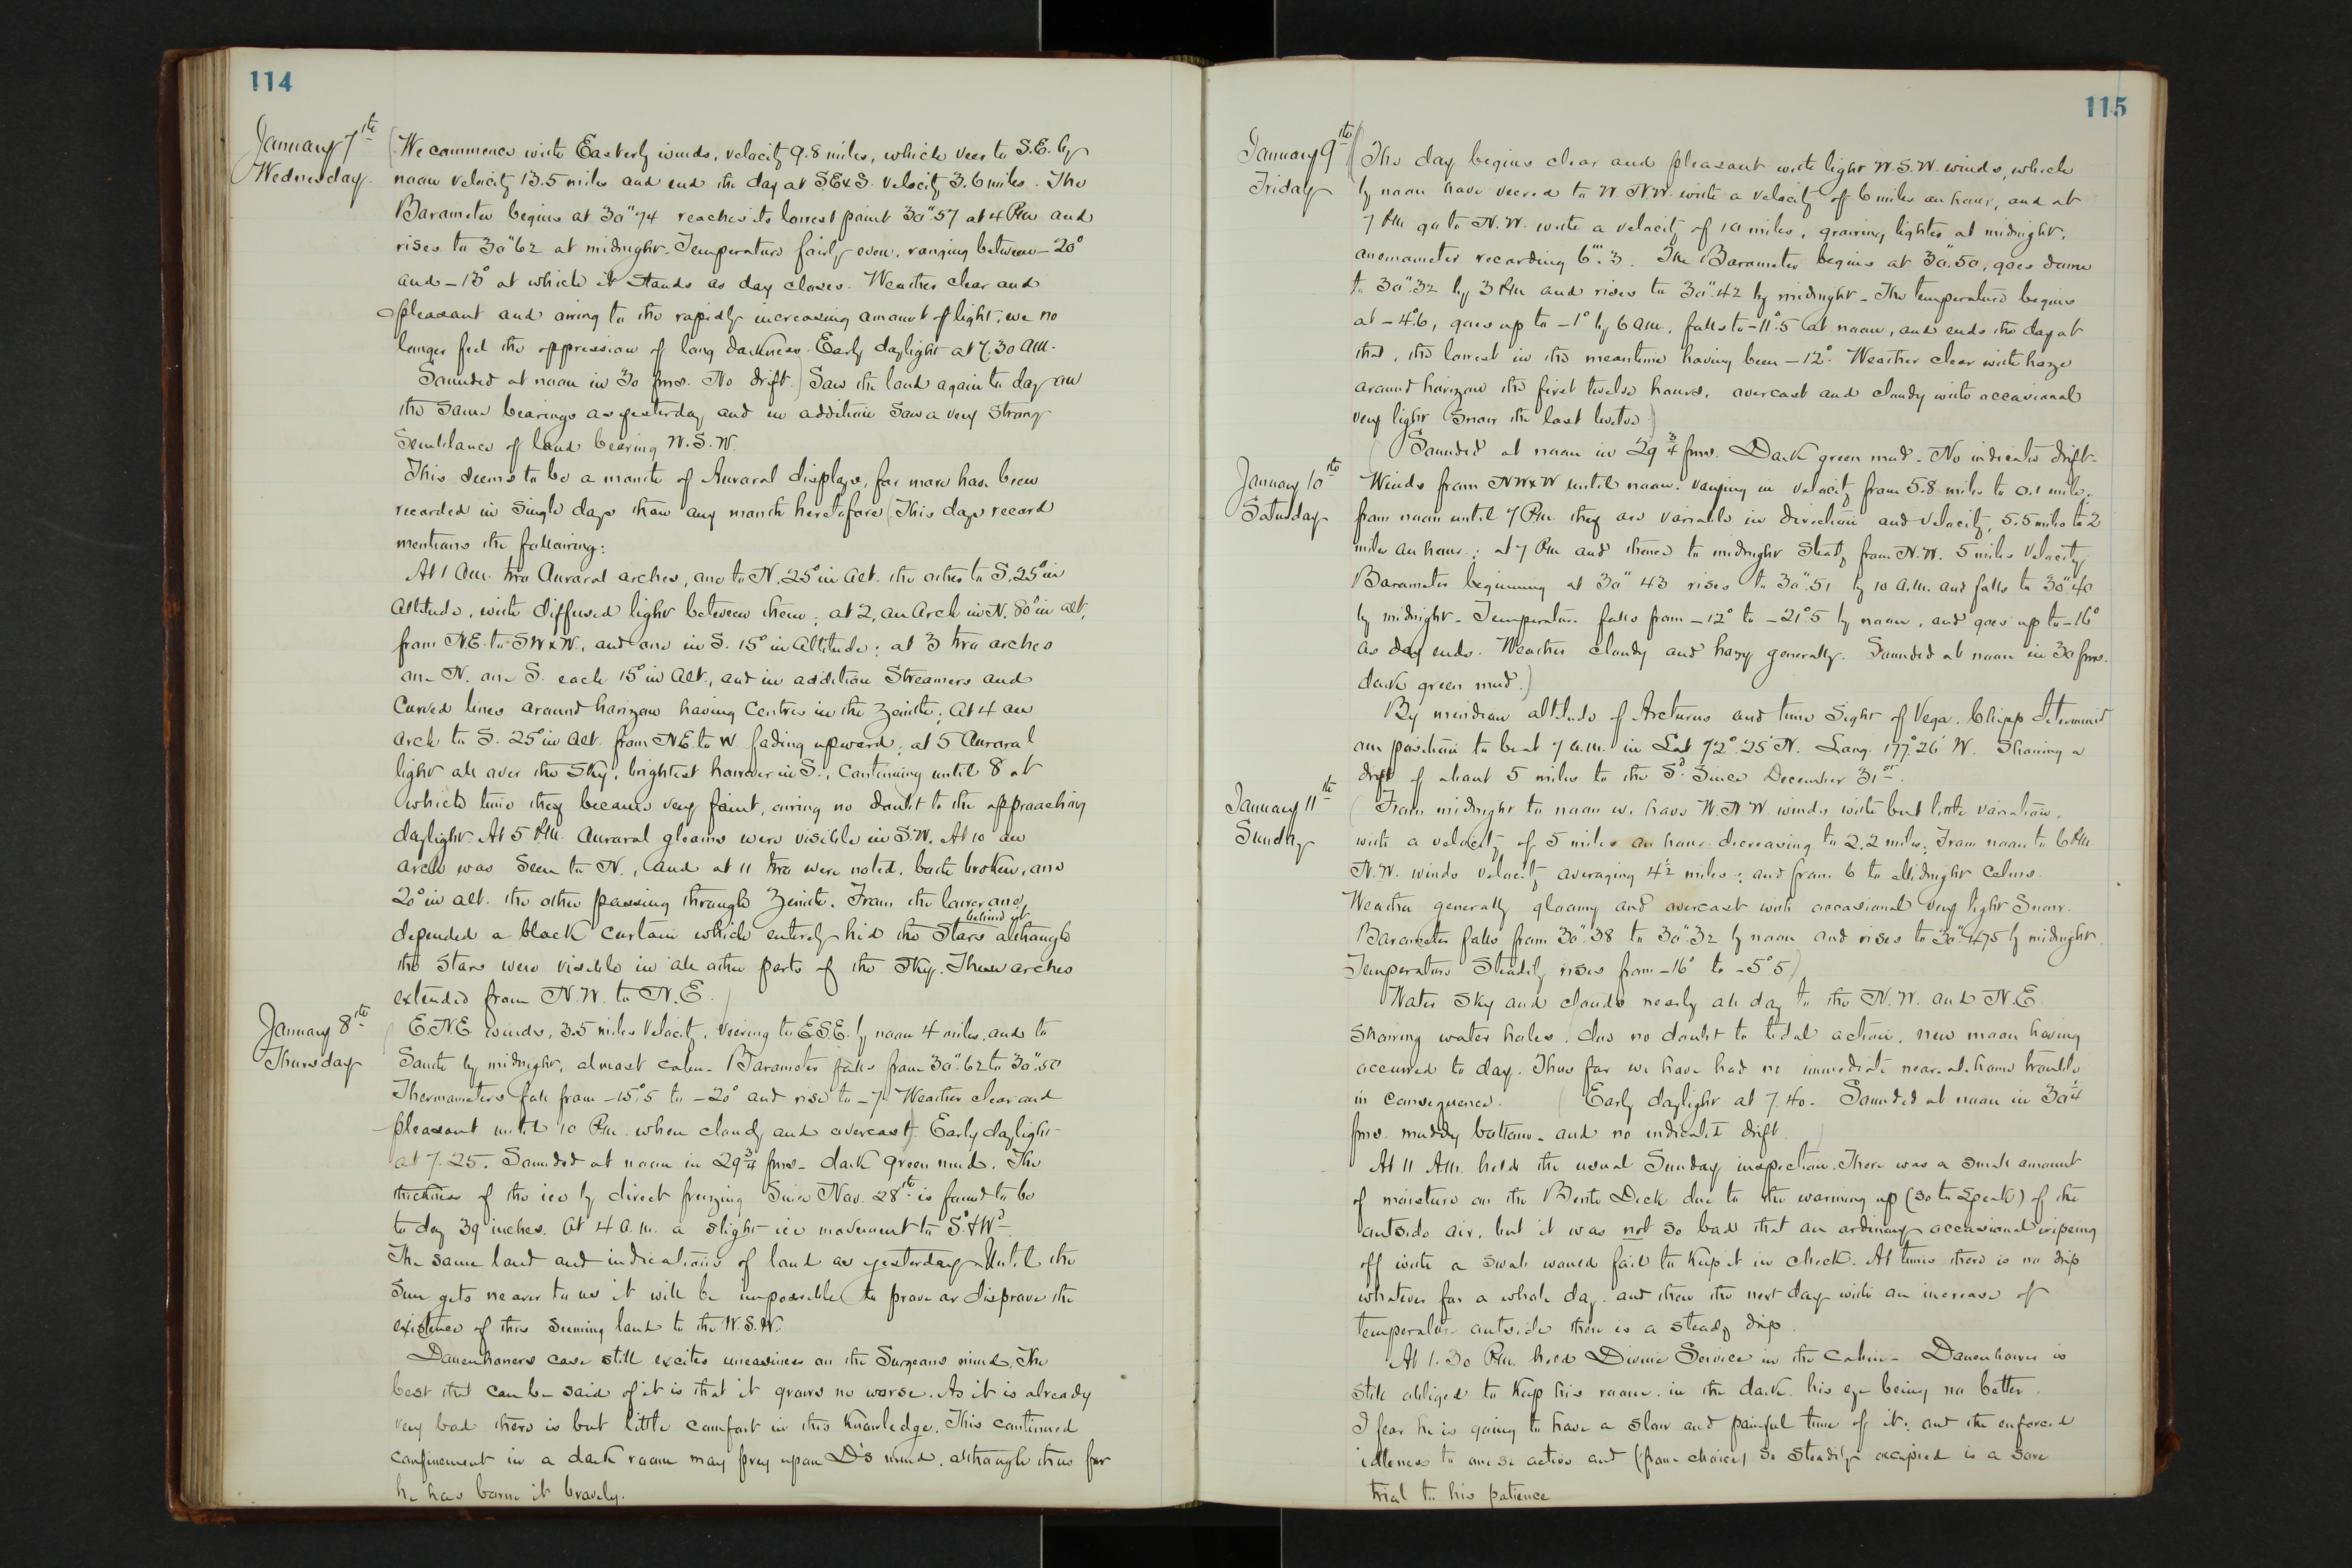 114
January 7th
Wednesday.
(We commence with Easterly winds, velocity 9.8 miles, which veer to S.E. by
noon velocity 13.5 miles and end the day at SExS. velocity 3.6 miles. The
Barometer begins at 30".74 reaches its lowest point 30".57 at 4 P.M. and
rises to 30".62 at midnight. Temperature fairly even, ranging between -20°
and -13° at which it stands as day closes. Weather clear and
pleasant and owing to the rapidly increasing amount of light, we no
longer feel the oppression of long darkness. Early daylight at 7.30 A.M.
Sounded at noon in 30 fms. No drift.) Saw the land again to day on
the same bearings as yesterday and in addition saw a very strong
semblance of land bearing W.S.W.
This seems to be a month of Auroral displays, far more have been
recorded in single days than any month heretofore. (This days record
mentions the following:
At 1 A.M. two Auroral arches, one to N. 25° in alt. the other to S. 25° in
altitude, with diffused light between them; at 2, an Arch in N. 80° in alt,
from N.E. to SWxW., and one in S. 15° in altitude; at 3 two arches
one N. one S. each 15° in Alt., and in addition Streamers and
Curved lines around horizon having centres in the Zenith; at 4 an
arch to S. 25° in Alt. from N.E. to W. fading upward; at 5 Auroral
light all over the sky, brightest however in S., continuing until 8 at
which time they became very faint, owing no doubt to the approaching
daylight. At 5 P.M. Auroral gleams were visible in S.W. At 10 an
arch was seen to N., and at 11 two were noted, both broken, one
20° in alt. the other passing through Zenith. From the lower one,
depended a black curtain which entirely hid the stars behind it although
the stars were visible in all other parts of the sky. These arches
extended from N.W. to N.E.)
January 8th
Thursday
(E.N.E. winds, 3.5 miles velocity, veering to E.S.E. by noon 4 miles, and to
South by midnight, almost calm. Barometer falls from 30".62 to 30".50
Thermometers fall from -15°.5 to -20° and rise to -7. Weather clear and
pleasant until 10 P.M. when cloudy and overcast) Early daylight
at 7.25. Sounded at noon in 29¾ fms. dark green mud. The
thickness of the ice by direct freezing since Nov. 28th is found to be
to day 39 inches. At 4 a.m. a slight ice movement to Sd & Wd
The same land and indications of land as yesterday. Until the
Sun gets nearer to us it will be impossible to prove or disprove the
existence of this seeming land to the W.S.W.
Danenhowers case still excites uneasiness on the Surgeons mind. The
best that can be said of it is that it grows no worse. As it is already
very bad there is but little comfort in this knowledge. This continued
confinement in a dark room may prey upon D's mind, although thus far
he has borne it bravely.
115
January 9th
Friday
(The day begins clear and pleasant with light W.S.W. winds, which
by noon have veered to W.N.W. with a velocity of 6 miles an hour, and at
7 P.M. go to N.W. with a velocity of 10 miles, growing lighter at midnight,
anemometer recording 6m.3. The Barometer begins at 30".50, goes down
to 30".32 by 3 P.M. and rises to 30".42 by midnight. The temperature begins
at -4°.6, goes up to -1° by 6 a.m., falls to -11°.5 at noon, and ends the day at
that, the lowest in the meantime having been -12°. Weather clear with haze
around horizon the first twelve hours, overcast and cloudy with occasional
very light snow the last twelve.)
Sounded at noon in 29¾ fms. Dark green mud. No indicated drift.
January 10th
Saturday
(Winds from NWxW until noon, varying in velocity from 5.8 miles to 0.1 mile;
from noon until 7 P.M. they are variable in direction and velocity, 5.5 miles to 2
miles an hour; at 7 P.M. and thence to midnight steady from N.W. 5 miles velocity.
Barometer beginning at 30".43 rises to 30".51 by 10 A.M. and falls to 30".40
by midnight. Temperature falls from -12° to -21°.5 by noon, and goes up to -16°
as day ends. Weather cloudy and hazy generally. Sounded at noon in 30 fms.
dark green mud.)
By meridian altitude of Arcturus and time sight of Vega, Chipp determined
our position to be at 7 a.m. in Lat 72° 25' N. Long. 177° 26' W. Showing a
drift of about 5 miles to the Sd. since December 31st.
January 11th
Sunday
(From midnight to noon we have W.N.W. winds with but little variation,
with a velocity of 5 miles an hour decreasing to 2.2 miles; From noon to 6 P.M.
N.W. winds velocity averaging 4½ miles; and from 6 to Midnight Calms.
Weather generally gloomy and overcast with occasional very light snow.
Barometer falls from 30".38 to 30".32 by noon and rises to 30".475 by midnight.
Temperature steadily rises from -16° to -5°.5)
Water sky and clouds nearly all day to the N.W. and N.E.
showing water holes, due no doubt to tidal action, new moon having
occurred to day. Thus far we have had no immediate near-at-home trouble
in consequence. (Early daylight at 7.40. Sounded at noon in 30¼
fms. muddy bottom. and no indicated drift.)
At 11 A.M. held the usual Sunday inspection. There was a small amount
of moisture on the Berth Deck due to the warming up (so to speak) of the
outside air, but it was not so bad that an ordinary occasional wipeing
off with a swab would fail to keep it in check. At times there is no drip
whatever for a whole day, and then the next day with an increase of
temperature outside there is a steady drip.
At 1.30 P.M. held Divine Service in the Cabin. Danenhower is
still obliged to keep his room, in the dark, his eye being no better.
I fear he is going to have a slow and painful time of it; and the enforced
idleness to one so active and (from choice) so steadily occupied is a sore
trial to his patience